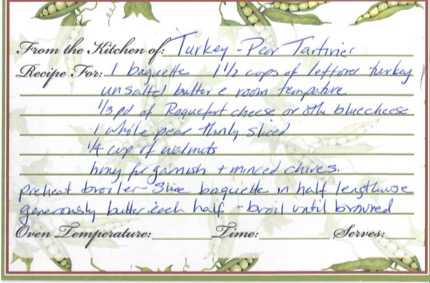 From the Kitchen of: Turkey - Pear Tartines
Recipe For: 1 baguette 1 1/2 cups of leftover turkey
unsalted butter @ room tempature
1/3 pd of Roquefort cheese or othr bluecheese
1 whole pear thinly sliced
1/4 cup of walnuts
honey for garnish + minced chives.
preheat broiler - Slice baguette in half lengthwise
generously butter each half - broil until browned
Oven Temperature: Time: Serves: